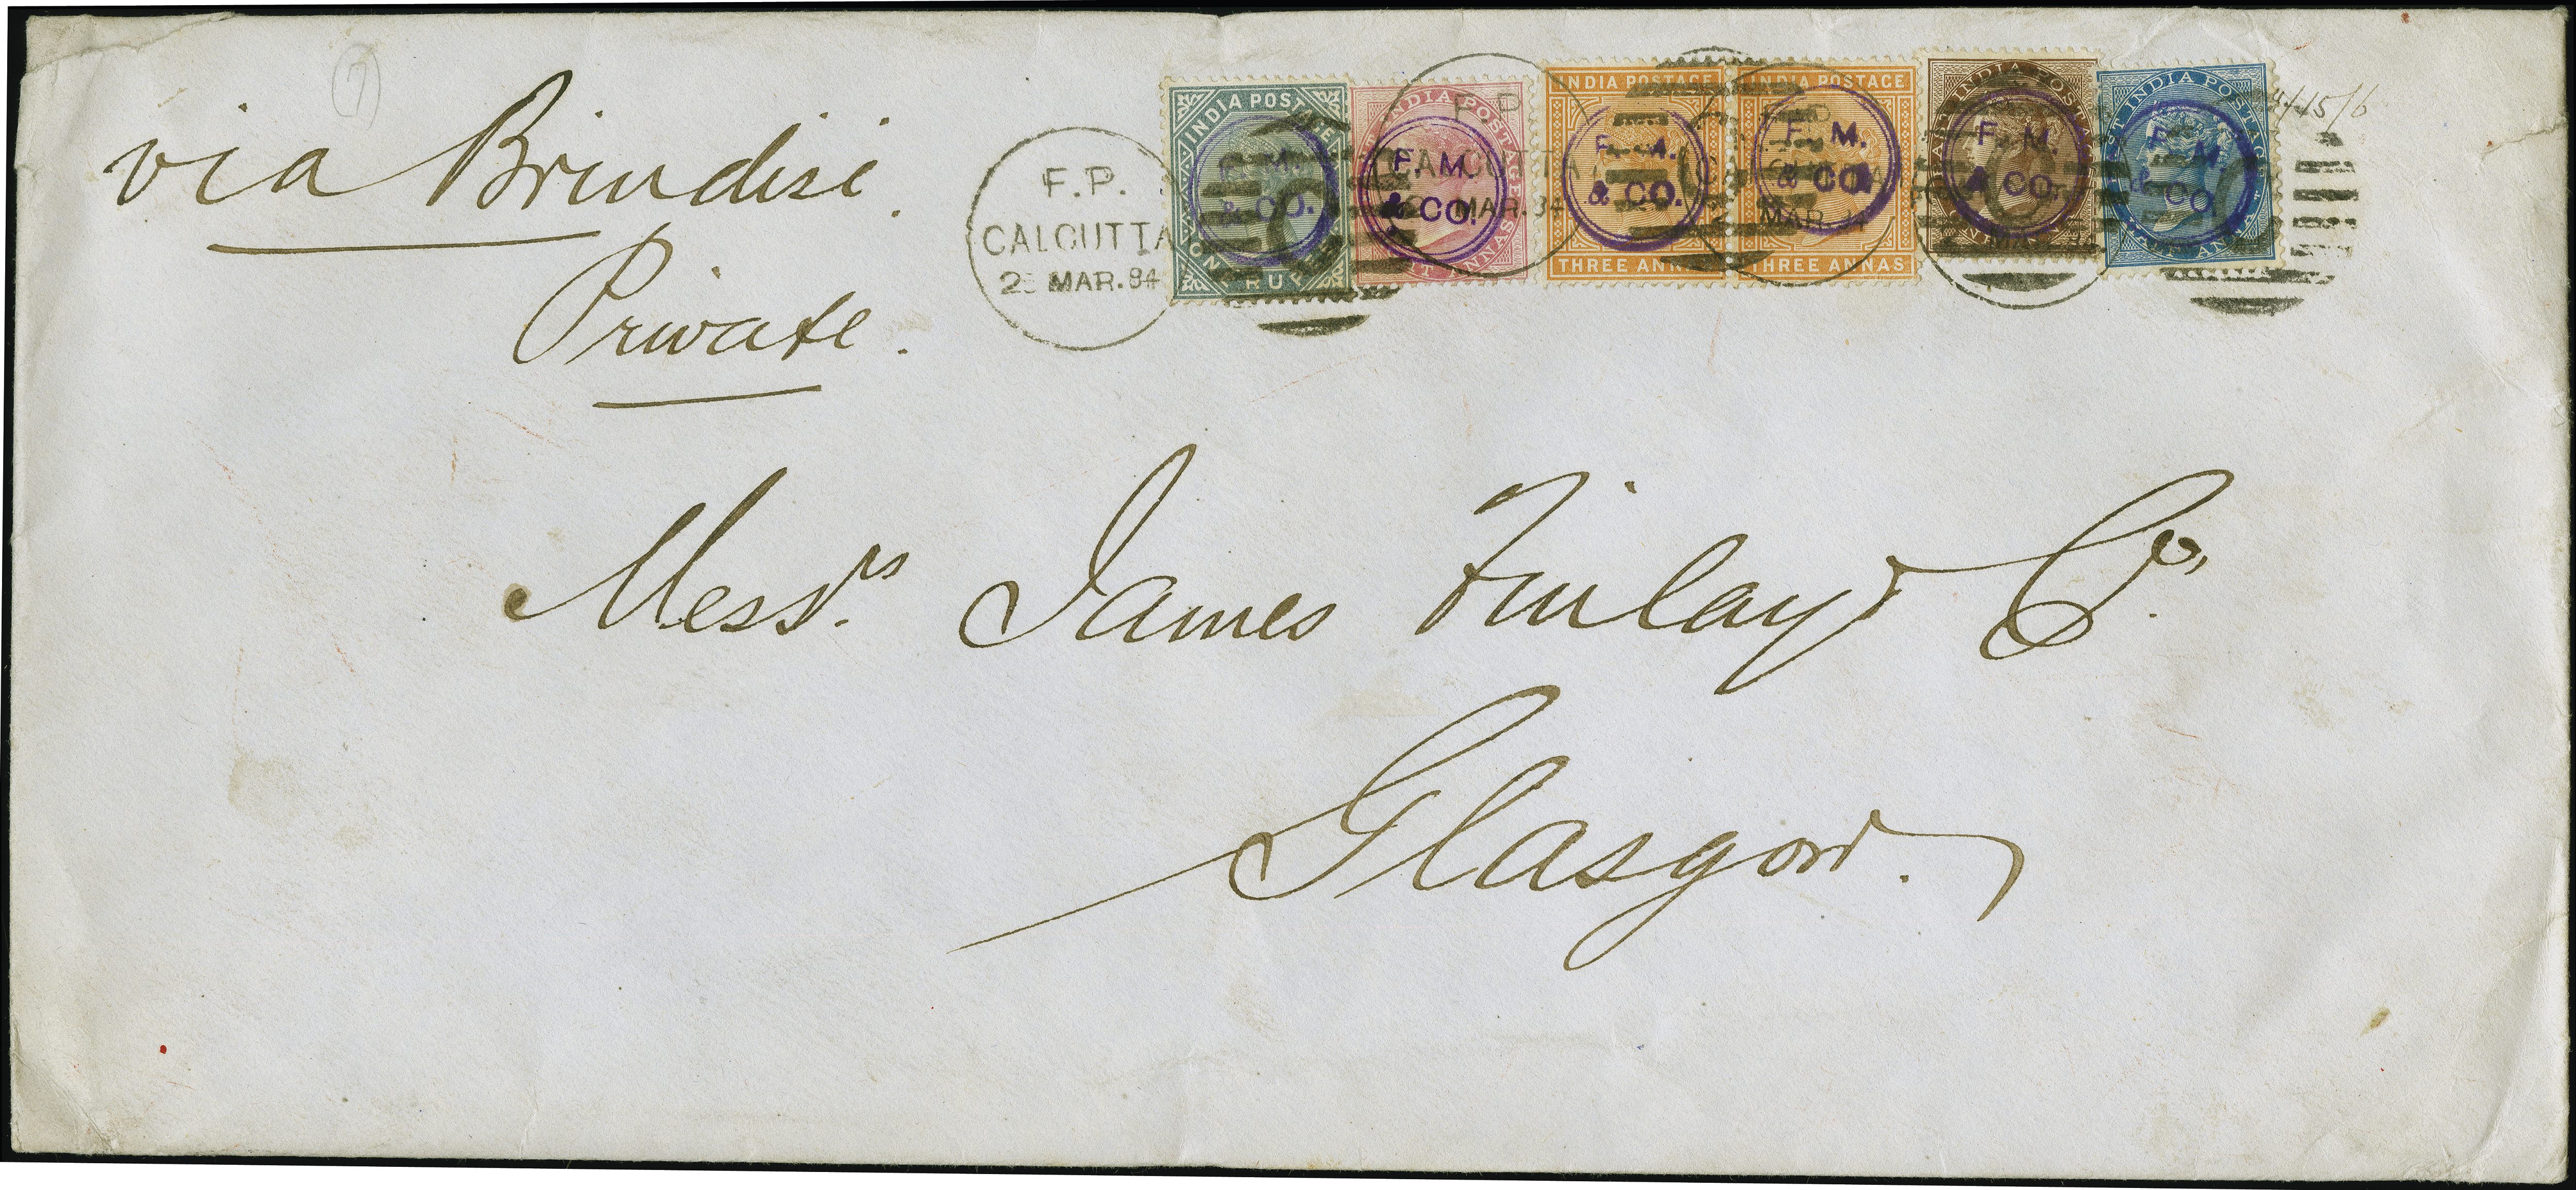 via Brindisi.
Private.
Messrs. James Finlay & Co.
Glasgow.
7
F.P.
CALCUTTA
MAR.84
INDIA POSTAGE
ONE RUPEE
& CO.
INDIA POSTAGE
F. M.
& CO.
F.P.
CALCUTTA
MAR. 84
INDIA POSTAGE
THREE ANNAS
& CO.
INDIA POSTAGE
F. M.
& CO.
MAR. 84
THREE ANNAS
INDIA POSTAGE
F. M.
& CO.
EAST INDIA POSTAGE
F. M.
& CO.
HALF ANNA